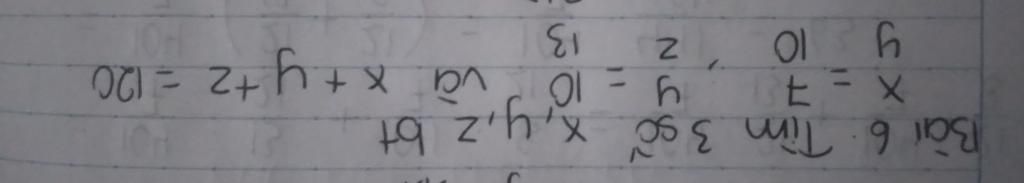 Bài 6. Tìm 3 số x, y, z bt
x/y = 7/10, y/z = 10/13 và x + y + z = 120